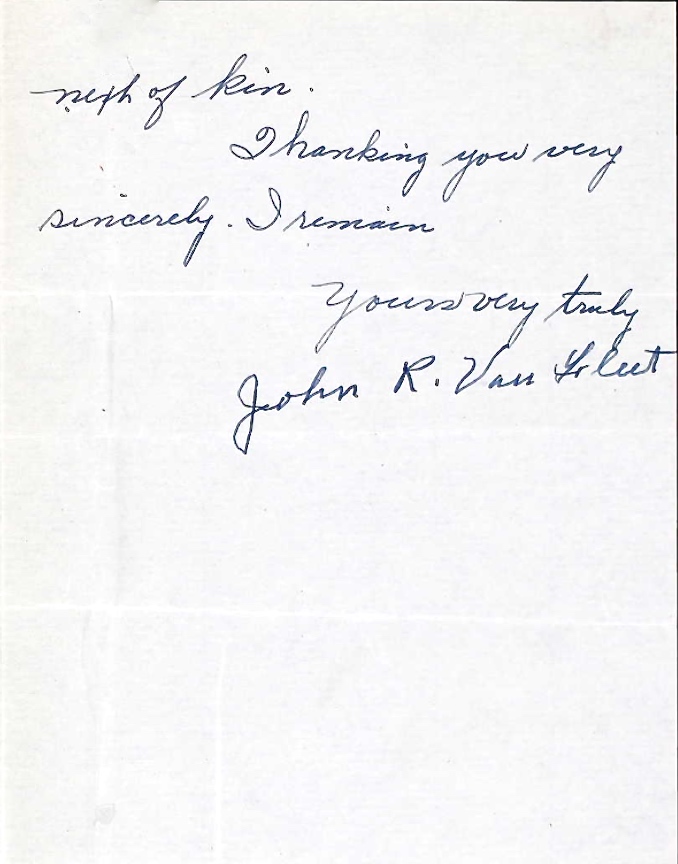 next of kin.
Thanking you very
sincerely. I remain
Yours very truly
John R. Van Fleet